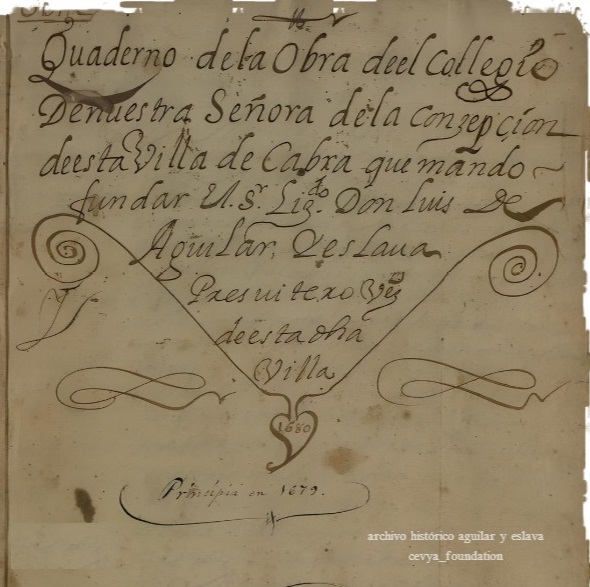 Quaderno dela Obra deel Collegio
Denuestra Señora dela Conzepcion
deesta Villa de Cabra que mando
fundar El Sr. Lizdo. Don Luis De
Aguilar, Yeslava
Presvitero Vez
deesta dha
Villa
1680
Prinsipia en 1679.
archivo histórico aguilar y eslava
cevya_foundation